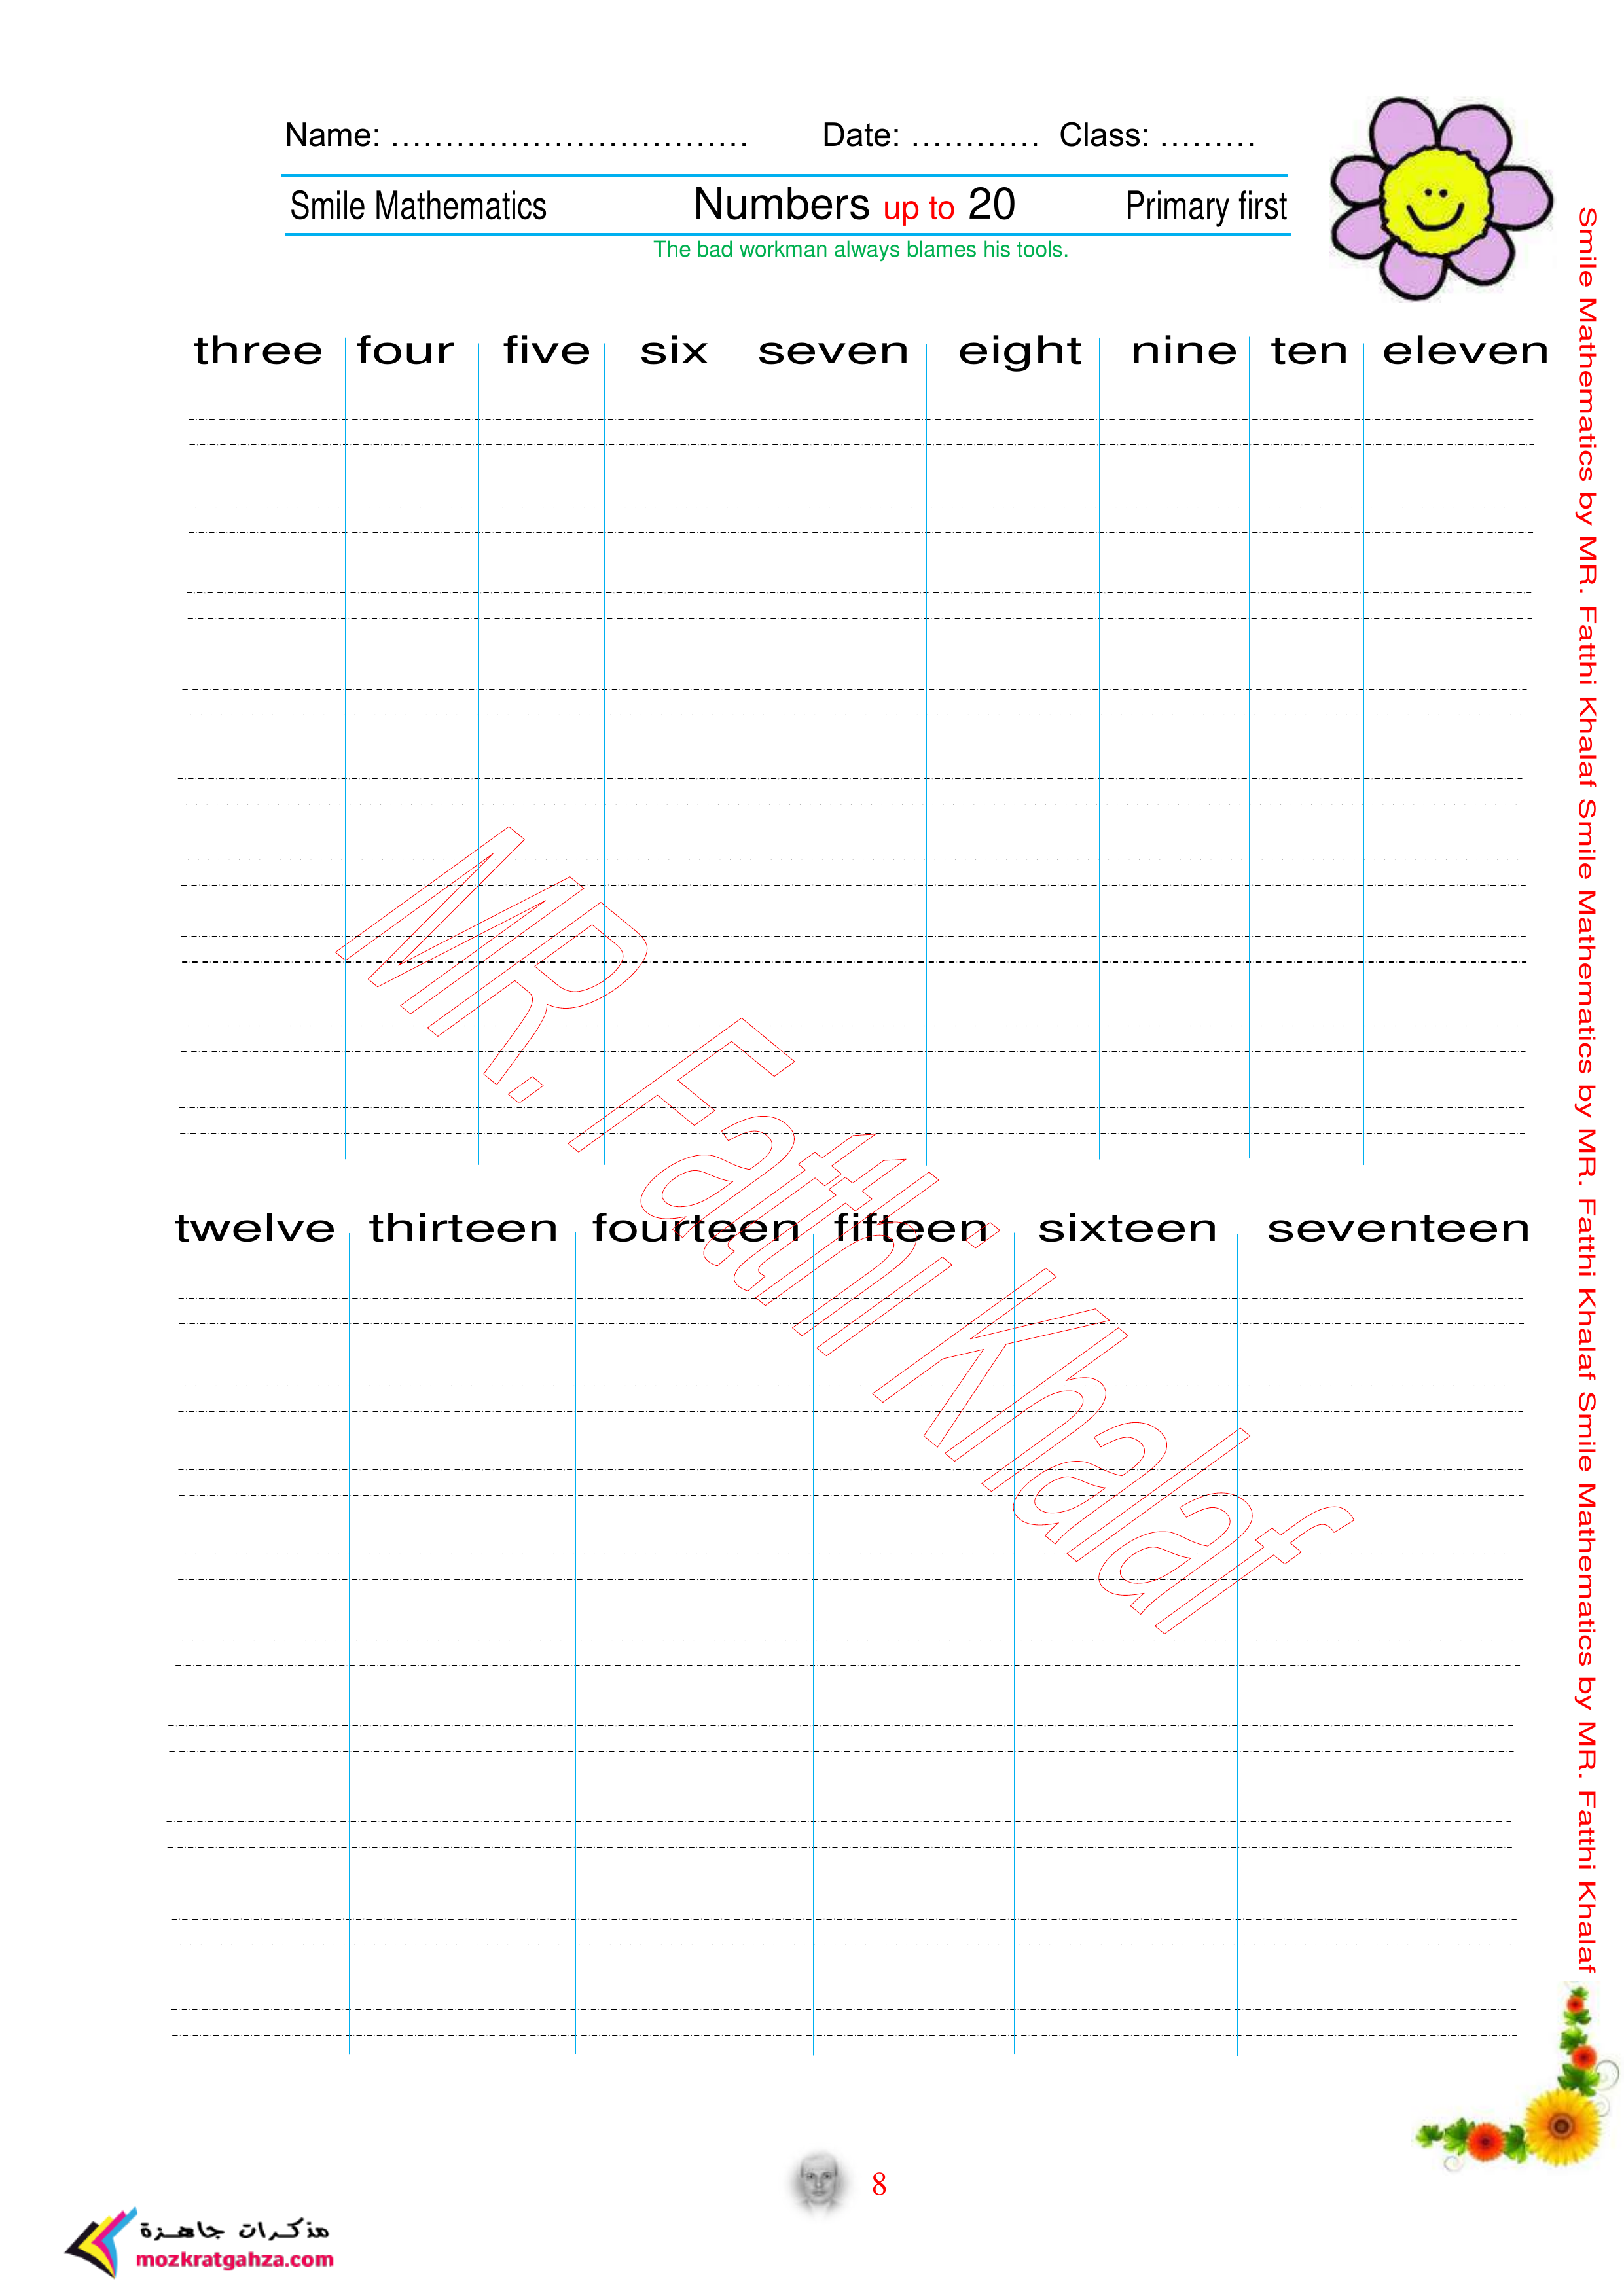 Name: ................................. Date: ............ Class: .........
Smile Mathematics Numbers up to 20 Primary first
The bad workman always blames his tools.
three four five six seven eight nine ten eleven
twelve thirteen fourteen fifteen sixteen seventeen
MR. Fathi Khalaf
Smile Mathematics by MR. Fatthi Khalaf Smile Mathematics by MR. Fatthi Khalaf Smile Mathematics by MR. Fatthi Khalaf
8
مذكرات جاهزة
mozkratgahza.com